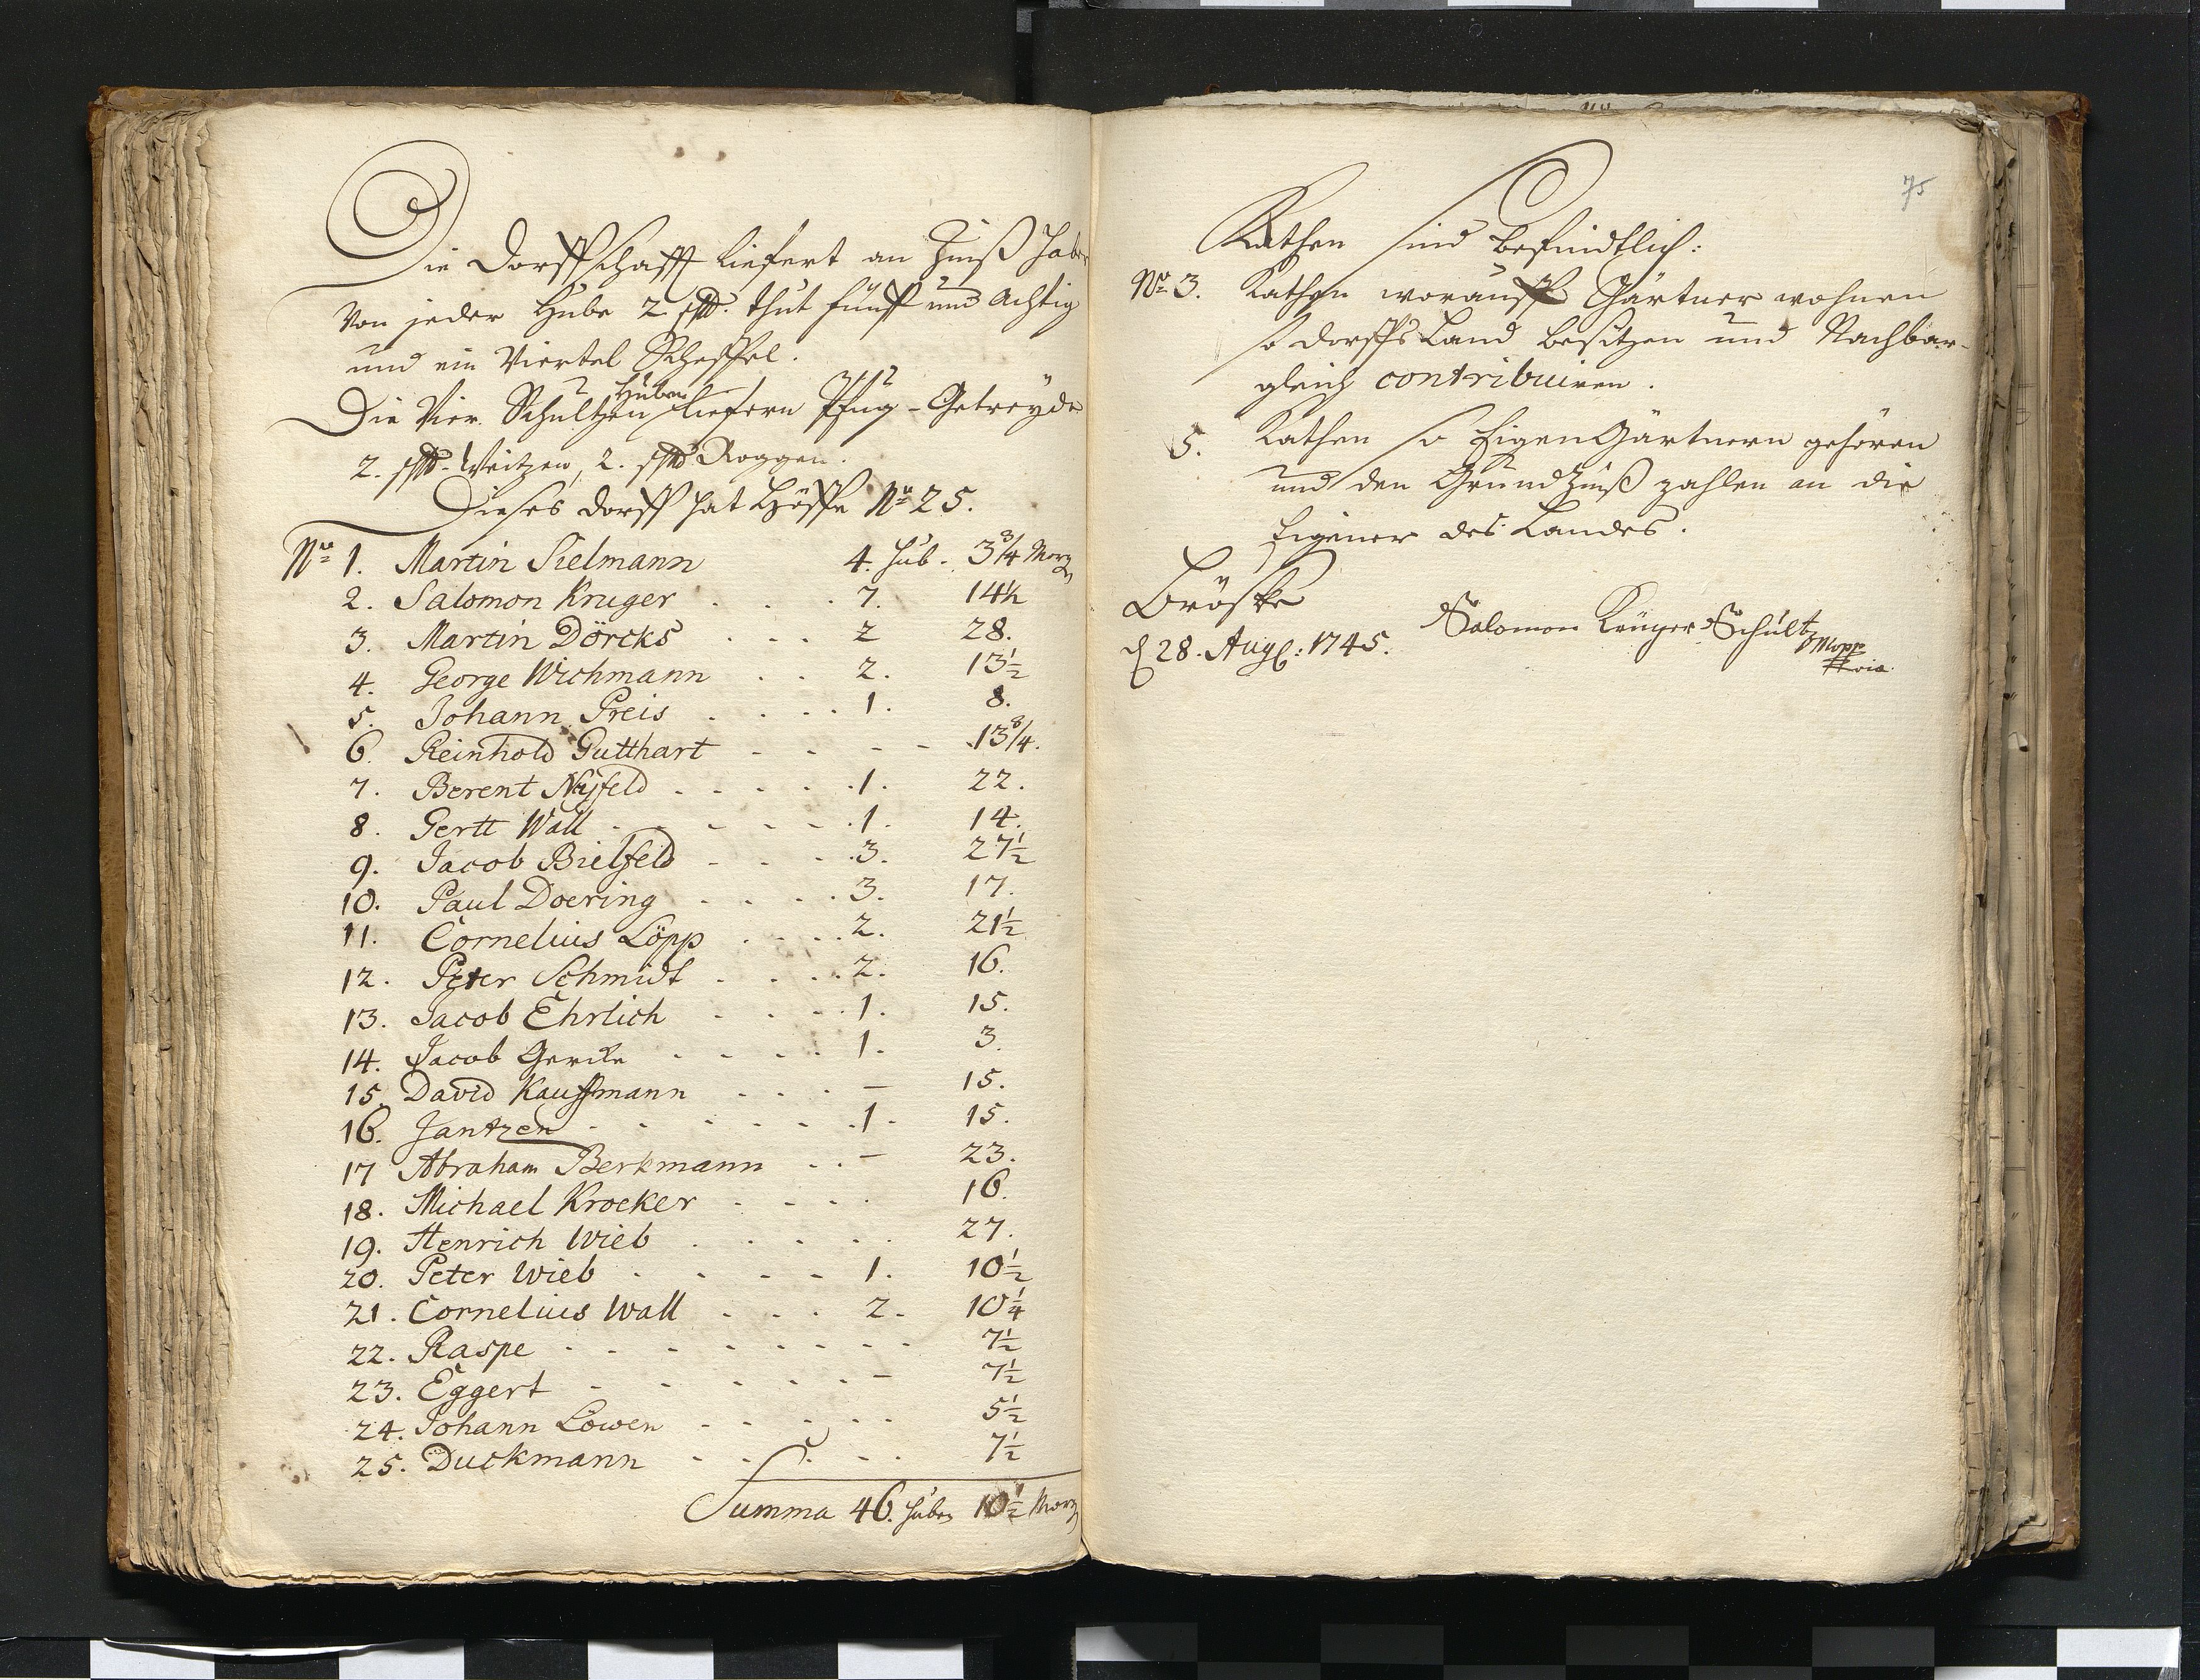 Die Dorffschafft liefert an Zinß Haber
Von jeder Hube 2 schfl. thut fünff und Achtzig
und ein Viertel Scheffel.
Die Vier Schultzen Huben liefern Pflug-Getreyde
2. schfl. Weitzen, 2. schfl. Roggen.
Dieses Dorff hat Höffe No 25.
No 1. Martin Sielmann 4. Hub. 3 3/4 Morg
2. Salomon Kruger . . . 7. 14½
3. Martin Dörcks . . . 2 28.
4. George Wichmann . . 2. 13½
5. Johann Preis . . . . 1. 8.
6. Reinhold Gutthart - - - - 13 3/4.
7. Berent Neyfeld - - - - 1. 22.
8. Gertt Wall - - - - - 1. 14.
9. Jacob Bielfeld - - - 3. 27½
10. Paul Doering . . . . 3. 17.
11. Cornelius Löpp . . . . 2. 21½
12. Peter Schmidt . . . . 2. 16.
13. Jacob Ehrlich . . . . 1. 15.
14. Jacob Gercke . . . . 1. 3.
15. David Kauffmann . . . — 15.
16. Jantzen - - - - - - 1. 15.
17 Abraham Berkmann . . — 23.
18. Michael Krocker - - - . 16.
19. Henrich Wieb . . . . . 27.
20. Peter Wieb - - - - 1. 10½
21. Cornelius Wall . . . 2. 10¼
22. Raspe - - - - - - - 7½
23. Eggert - - - - - - 7½
24. Johann Löwen - - - - - 5½
25. Duckmann - - - - - 7½
Summa 46. Huben 10½ Morg
75
Kathen sind befindtlich:
No 3. Kathen worauff Gärtner wohnen
so Dorffs Land besitzen und Nachbar-
gleich contribuiren.
5. Kathen so Eigen Gärtnern gehören
und den GrundZinß zahlen an die
Eigener des Landes.
Bröske
d 28. Augl: 1745.
Salomon Krüger Schultz
Mppr